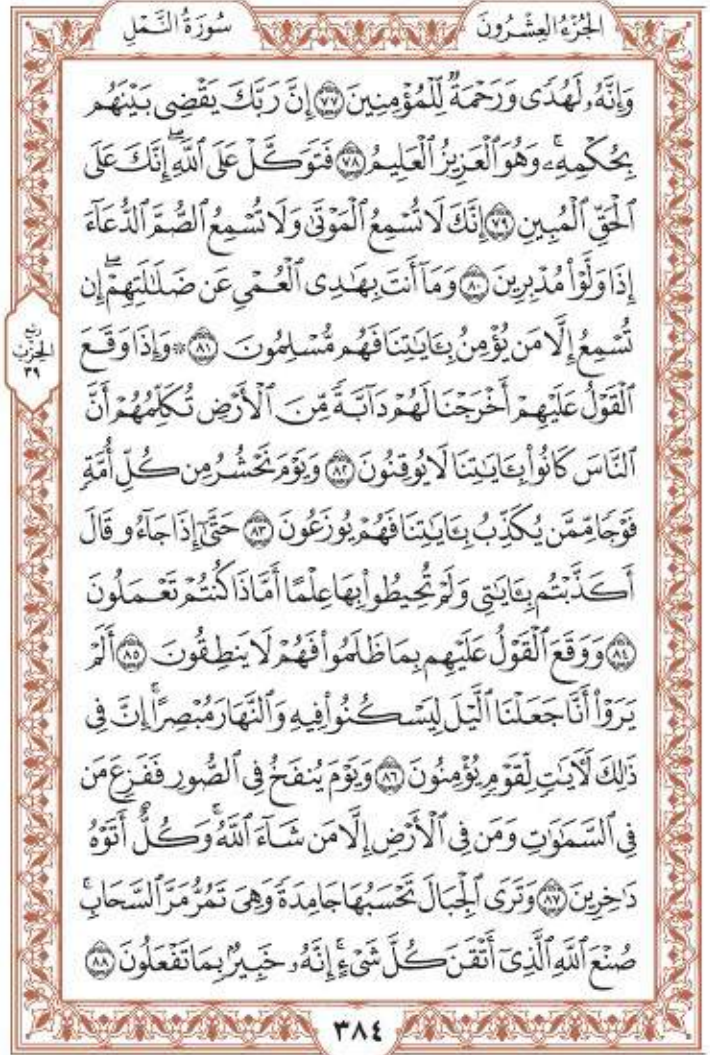 سُورَةُ النَّمْلِ
الجُزْءُ العِشْرُونَ
وَإِنَّهُۥ لَهُدًى وَرَحْمَةٌ لِّلْمُؤْمِنِينَ ٧٧ إِنَّ رَبَّكَ يَقْضِى بَيْنَهُم
بِحُكْمِهِۦۚ وَهُوَ ٱلْعَزِيزُ ٱلْعَلِيمُ ٧٨ فَتَوَكَّلْ عَلَى ٱللَّهِۖ إِنَّكَ عَلَى
ٱلْحَقِّ ٱلْمُبِينِ ٧٩ إِنَّكَ لَا تُسْمِعُ ٱلْمَوْتَىٰ وَلَا تُسْمِعُ ٱلصُّمَّ ٱلدُّعَآءَ
إِذَا وَلَّوْا۟ مُدْبِرِينَ ٨٠ وَمَآ أَنتَ بِهَـٰدِى ٱلْعُمْىِ عَن ضَلَـٰلَتِهِمْۖ إِن
تُسْمِعُ إِلَّا مَن يُؤْمِنُ بِـَٔايَـٰتِنَا فَهُم مُّسْلِمُونَ ٨١ ۞ وَإِذَا وَقَعَ
ٱلْقَوْلُ عَلَيْهِمْ أَخْرَجْنَا لَهُمْ دَآبَّةً مِّنَ ٱلْأَرْضِ تُكَلِّمُهُمْ أَنَّ
ٱلنَّاسَ كَانُوا۟ بِـَٔايَـٰتِنَا لَا يُوقِنُونَ ٨٢ وَيَوْمَ نَحْشُرُ مِن كُلِّ أُمَّةٍ
فَوْجًا مِّمَّن يُكَذِّبُ بِـَٔايَـٰتِنَا فَهُمْ يُوزَعُونَ ٨٣ حَتَّىٰٓ إِذَا جَآءُو قَالَ
أَكَذَّبْتُم بِـَٔايَـٰتِى وَلَمْ تُحِيطُوا۟ بِهَا عِلْمًا أَمَّاذَا كُنتُمْ تَعْمَلُونَ
٨٤ وَوَقَعَ ٱلْقَوْلُ عَلَيْهِم بِمَا ظَلَمُوا۟ فَهُمْ لَا يَنطِقُونَ ٨٥ أَلَمْ
يَرَوْا۟ أَنَّا جَعَلْنَا ٱلَّيْلَ لِيَسْكُنُوا۟ فِيهِ وَٱلنَّهَارَ مُبْصِرًاۚ إِنَّ فِى
ذَٰلِكَ لَـَٔايَـٰتٍ لِّقَوْمٍ يُؤْمِنُونَ ٨٦ وَيَوْمَ يُنفَخُ فِى ٱلصُّورِ فَفَزِعَ مَن
فِى ٱلسَّمَـٰوَٰتِ وَمَن فِى ٱلْأَرْضِ إِلَّا مَن شَآءَ ٱللَّهُۚ وَكُلٌّ أَتَوْهُ
دَٰخِرِينَ ٨٧ وَتَرَى ٱلْجِبَالَ تَحْسَبُهَا جَامِدَةً وَهِىَ تَمُرُّ مَرَّ ٱلسَّحَابِۚ
صُنْعَ ٱللَّهِ ٱلَّذِىٓ أَتْقَنَ كُلَّ شَىْءٍۚ إِنَّهُۥ خَبِيرٌۢ بِمَا تَفْعَلُونَ ٨٨
ربع
الحزب
٣٩
٣٨٤